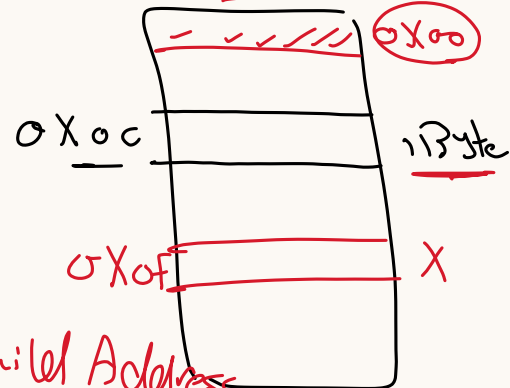 0X00
0X0C
1Byte
0X0f
X
Address